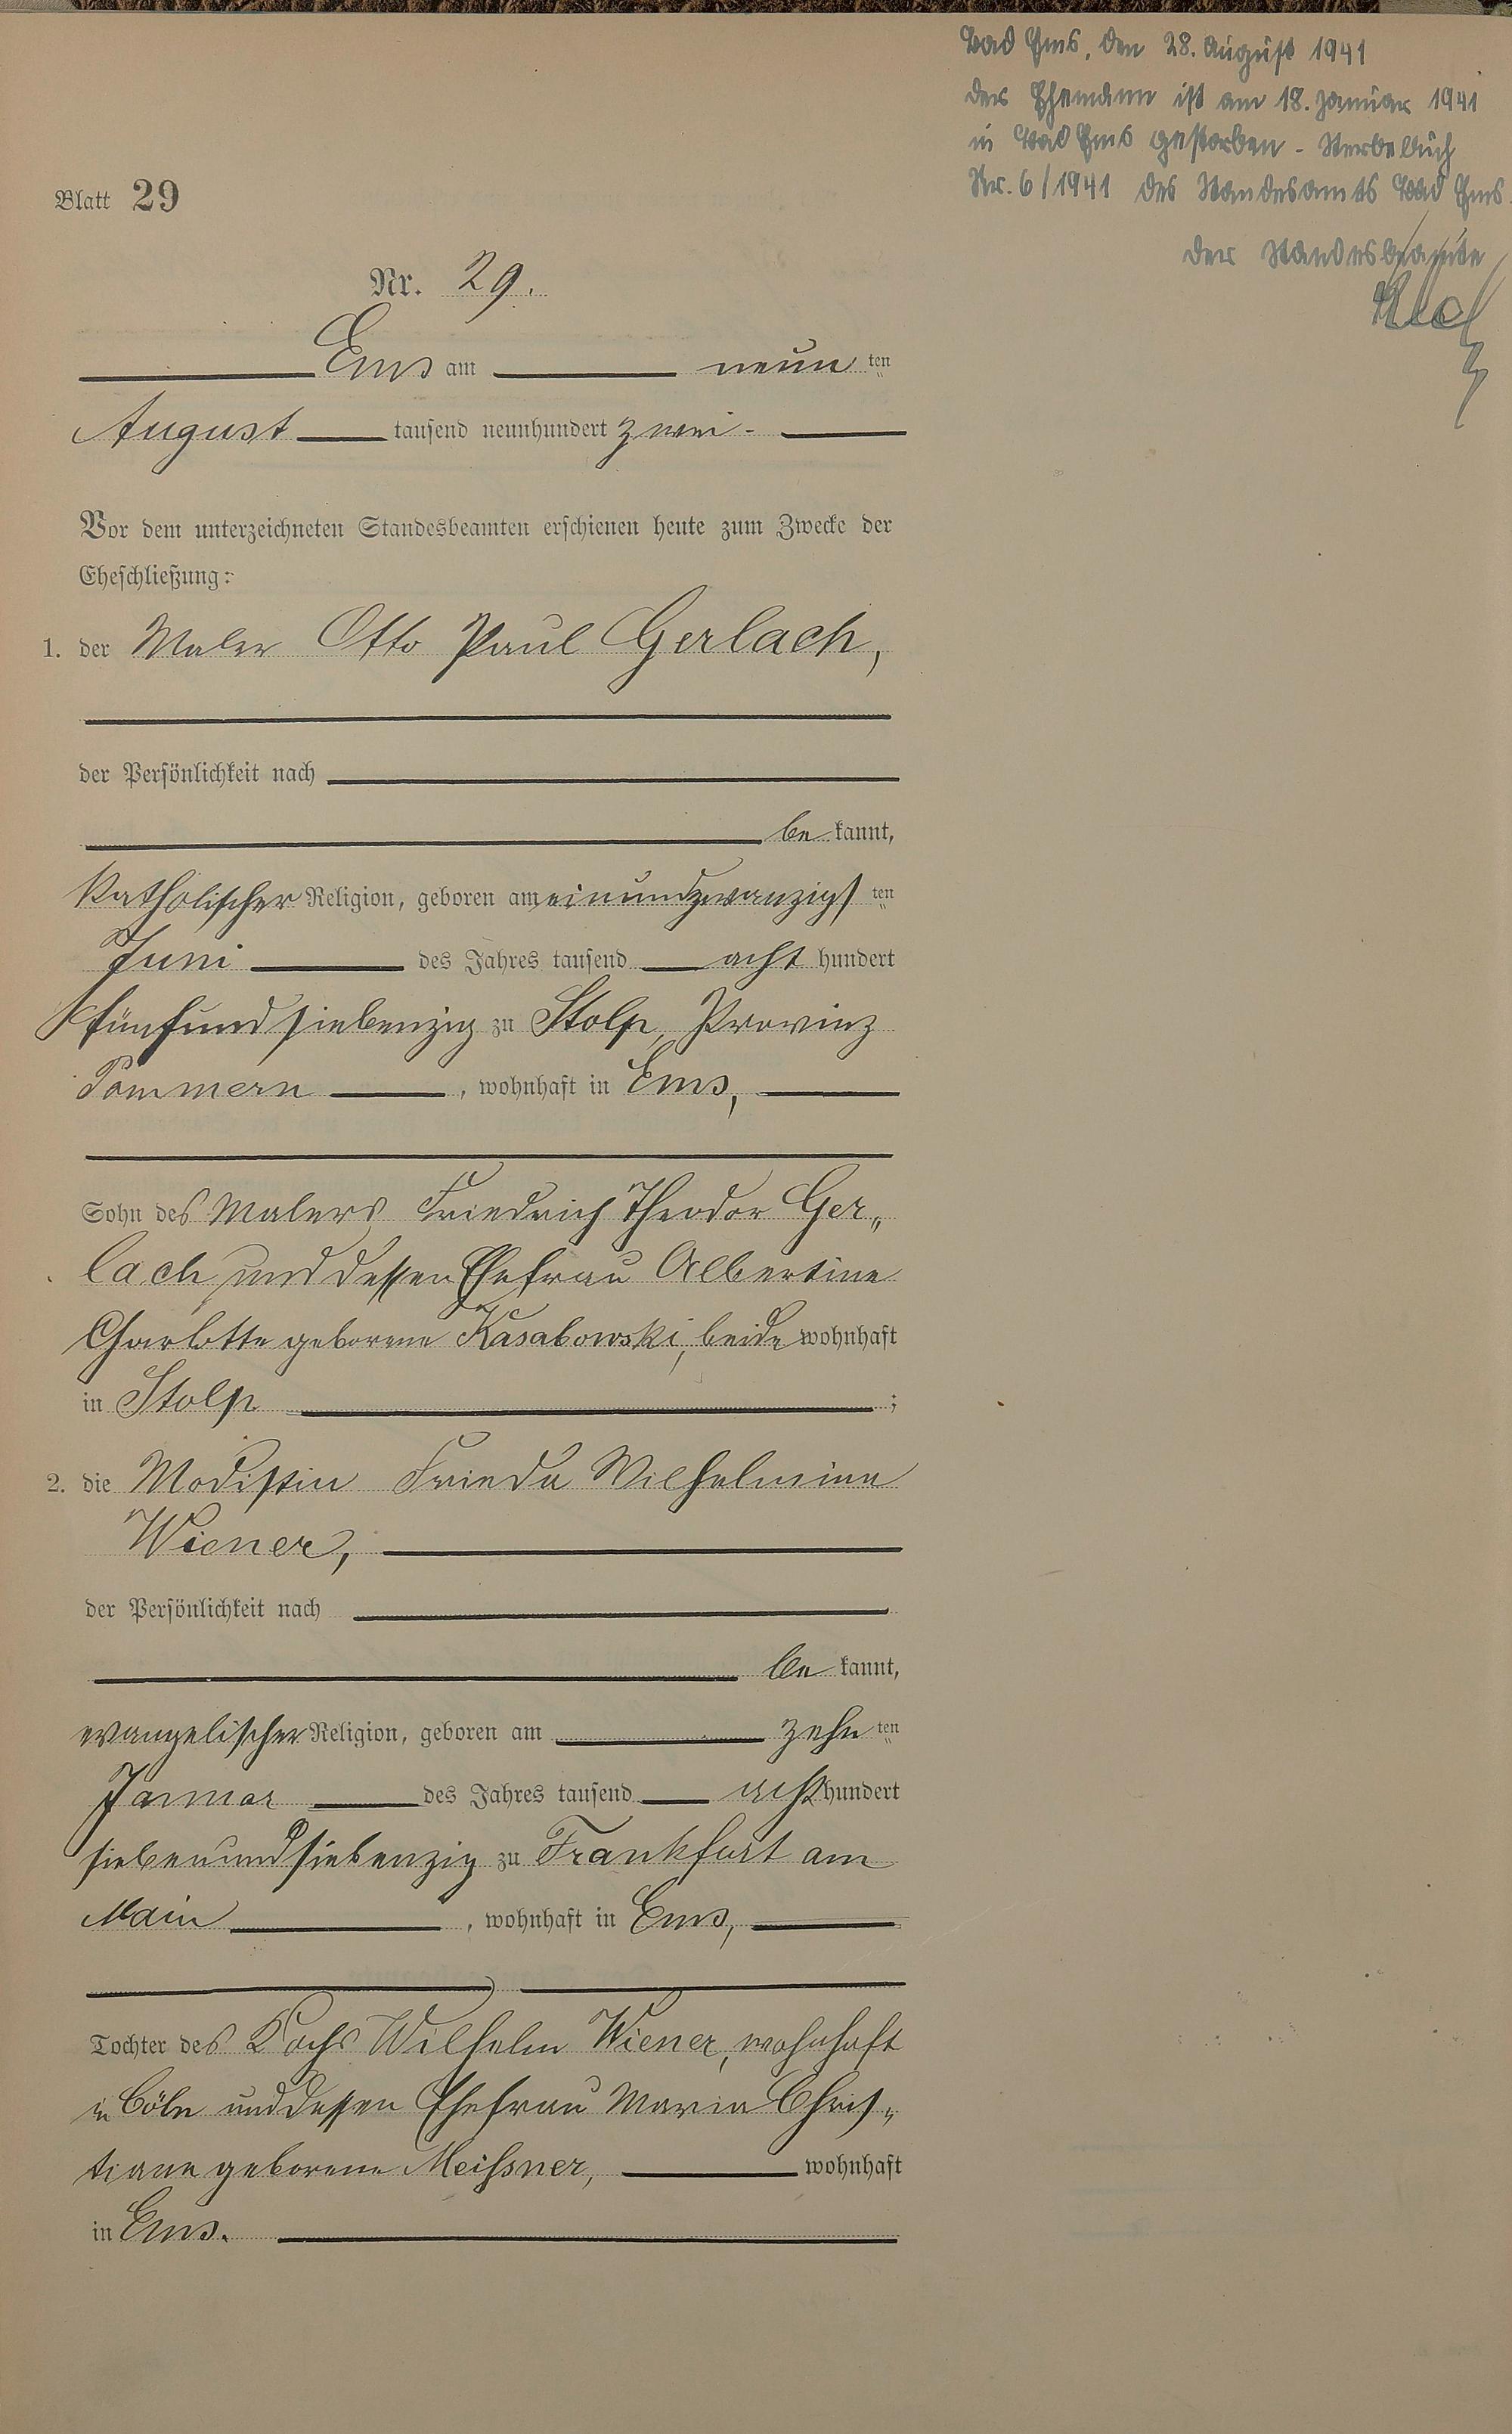 Bad Ems, den 28. August 1941
der Ehemann ist am 18. Januar 1941
in Bad Ems gestorben - Sterbebuch
Nr. 6/1941 des Standesamts Bad Ems.
der Standesbeamte
Blatt 29
Nr. 29.
Ems am neun ten
August tausend neunhundert zwei-
Vor dem unterzeichneten Standesbeamten erschienen heute zum Zwecke der
Eheschließung:
1. der Maler Otto Paul Gerlach,
der Persönlichkeit nach
be kannt,
katholischer Religion, geboren am einundzwanzigs ten
Juni des Jahres tausend acht hundert
fünfundsiebenzig zu Stolp, Provinz
Pommern , wohnhaft in Ems,
Sohn des Malers Friedrich Theodor Ger„
lach und dessen Ehefrau Albertine
Charlotte geborene Kasabowski, beide wohnhaft
in Stolp ;
2. die Modistin Frieda Wilhelmine
Wiener,
der Persönlichkeit nach
be kannt,
evangelischer Religion, geboren am zehn ten
Januar des Jahres tausend acht hundert
siebenundsiebenzig zu Frankfurt am
Main , wohnhaft in Ems,
Tochter des Kochs Wilhelm Wiener, wohnhaft
in Cöln und dessen Ehefrau Maria Chris„
tiane geborene Meißner, wohnhaft
in Ems.